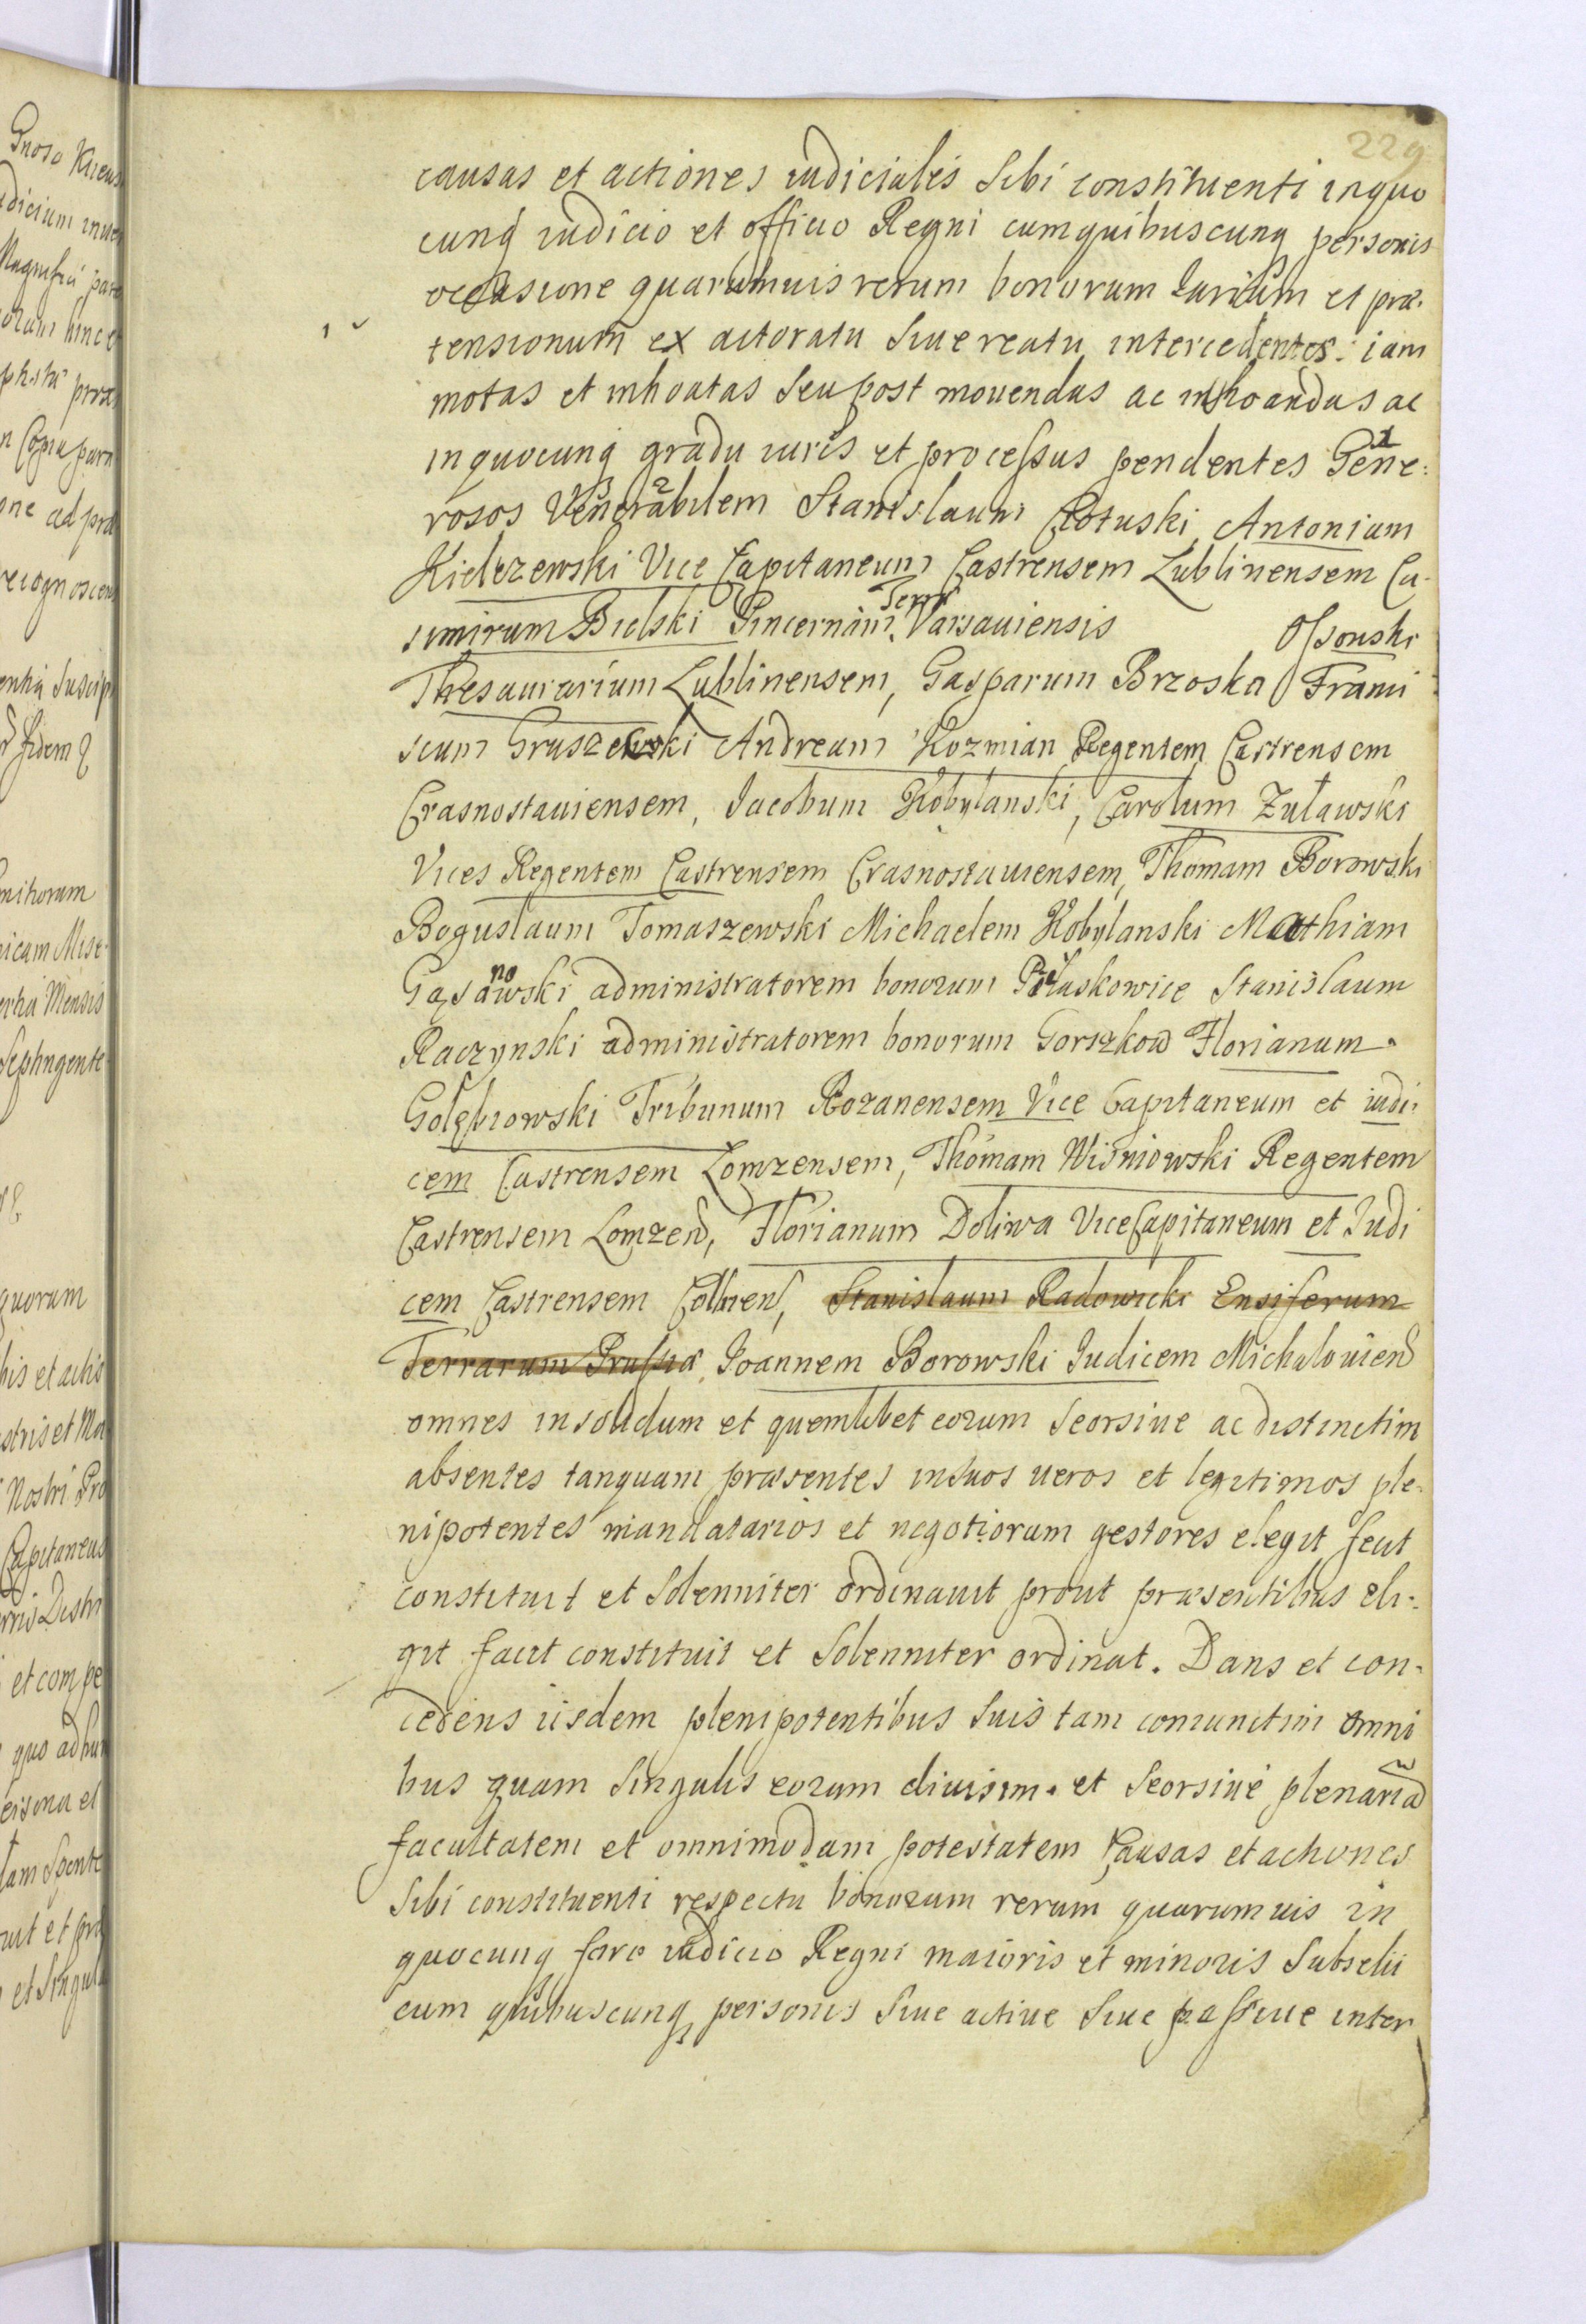 229
causas et actiones iudiciales Sibi constituenti inquo
cunq iudicio et officio Regni cumquibuscunq personis
occasione quarumuis rerum bonorum Iurium et præ-
tensionum ex actoratu Siue reatu intercedentes: iam
motas et inhoatas Seu post mouendas ac inhoandas ac
inquocunq gradu iuris et processus pendentes Gene:
rosos Venerabilem Stanislaum Antonium
Kielczewski Vice Capitaneum Castrensem Lublinensem Ca-
simirum Bielski Pincernam Terræ Varsauiensis Ossonski
Thesaurarium Lublinensem, Gasparum Brzoska Franci
scum Gruszewski Andream Kozmian Regentem Castrensem
Crasnostauiensem, Iacobum Kobylanski, Carolum Zuławski
Vices Regentem Castrensem Crasnostauiensem, Thomam Borowski
Boguslaum Tomaszewski Michaelem Kobylanski Mathiam
administratorem bonorum Stanislaum
Raczynski administratorem bonorum Gorszkow Florianum
Gołębiowski Tribunum Rozanensem Vice Capitaneum et iudi-
cem Castrensem Lomzensem, Thomam Wisniowski Regentem
Castrensem Lomzen, Florianum Doliwa ViceCapitaneum et Iudi
cem Castrensem Collnen, Stanislaum Radowicki Ensiferum
Terrarum Prussiæ, Ioannem Borowski Iudicem Michalouien
omnes insolidum et quemlibet eorum Seorsiue ac distinctim
absentes tanquam præsentes insuos ueros et legitimos ple-
nipotentes mandatarios et negotiorum gestores elegit fecit
constituit et Solenniter ordinauit prout præsentibus eli-
git facit constituit et Solenniter ordinat. Dans et con-
cedens iisdem plenipotentibus Suis tam coniunctim omni
bus quam Singulis eorum diuisim et Seorsiue plenariã
facultatem et omnimodam potestatem Causas et actiones
Sibi constituenti respectu bonorum rerum quarumuis in
quocunq foro iudicio Regni maioris et minoris Subselii
cum quibuscunq personis Siue actiue Siue passiue inter